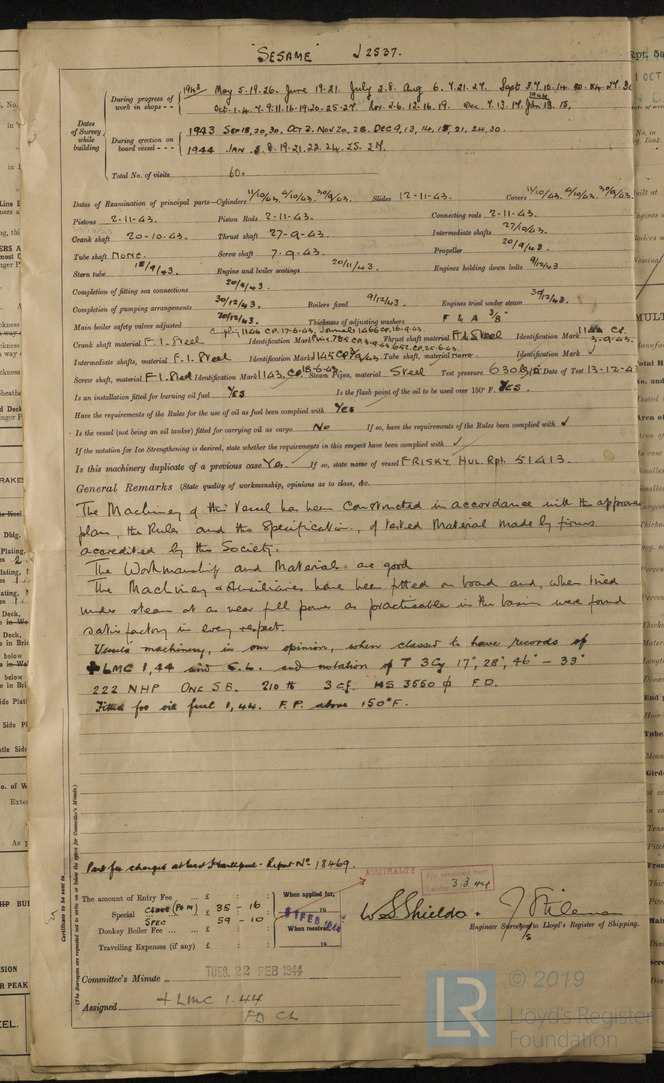 "SESAME" J2537.
Dates of Survey while building
During progress of work in shops - -
1943 May 5.19.26. June 19.21. July 2.8. Aug 6.
Oct. 1.4.7.9.11.16.19.20.25.27. Nov. 2.6.12.16.19. Dec. 7.13.17. Jan 13. 15.
During erection on board vessel - - -
1943 Sep 18,20,30, Oct 2. Nov 20, 28. Dec 9,13, 14, 21, 24,30.
1944 JAN 8. 19.21.22.24.25.27.
Total No. of visits 60.
Dates of Examination of principal parts—Cylinders 11/10/43. 4/10/43. 30/9/43. Slides 12-11-43. Covers 11/10/43. 4/10/43. 30/9/43.
Pistons 2-11-43. Piston Rods 2-11-43. Connecting rods 2-11-43.
Crank shaft 20-10-43. Thrust shaft 27-9-43. Intermediate shafts 27/10/43.
Tube shaft NONE. Screw shaft 7-9-43. Propeller 20/9/43.
Stern tube 18/9/43. Engine and boiler seatings 20/11/43. Engines holding down bolts 9/12/43
Completion of fitting sea connections 20/9/43.
Completion of pumping arrangements 30/12/43. Boilers fixed 9/12/43 Engines tried under steam 30/12/43.
Main boiler safety valves adjusted 30/12/43. Thickness of adjusting washers F & A 3/8"
Crank shaft material F.I. Steel Identification Mark Thrust shaft material F.I. Steel Identification Mark 1144 CP. 3-9-43.
Intermediate shafts, material F.I. Steel Identification Mark 1145 CP Tube shaft, material None. Identification Mark ✓
Screw shaft, material F.I. Steel Identification Mark 1143. CP 18-6-43. Steam Pipes, material Steel Test pressure 630 Date of Test 13-12-43
Is an installation fitted for burning oil fuel YES Is the flash point of the oil to be used over 150° F. YES.
Have the requirements of the Rules for the use of oil as fuel been complied with YES
Is the vessel (not being an oil tanker) fitted for carrying oil as cargo No If so, have the requirements of the Rules been complied with ✓
If the notation for Ice Strengthening is desired, state whether the requirements in this respect have been complied with ✓
Is this machinery duplicate of a previous case Yes. If so, state name of vessel FRISKY. HUL. Rpt. 51413.
General Remarks (State quality of workmanship, opinions as to class, &c.
The Machinery of this Vessel has been constructed in accordance with the approved
plan, the Rules and the Specification, of tested Material made by firms
accredited by the Society.
The Workmanship and Material are good
The Machinery & Auxiliaries have been fitted on board and, when tried
under steam at as near full power as practicable in the basin were found
satisfactory in every respect.
Vessels machinery, in our opinion, when classed to have records of
+LMC 1,44 and C.L. and notation of T 3Cy 17", 28", 46" – 33"
222 NHP One S.B. 210 lb 3 cf. HS 3550 ϕ F.D.
Fitted for oil fuel 1,44. F.P. above 150°F.
Part fee charged at West Hartlepool - Report No 18469.
ADMIRALTY
3 3 44
The amount of Entry Fee .. £ : :
Special £ 35 - 16
SPEC 59 - 10
Donkey Boiler Fee ... ... £ : :
Travelling Expenses (if any) £ : :
When applied for,
FEB 1944
When received,
19
W S Shields.
Engineer Surveyor to Lloyd's Register of Shipping.
Committee's Minute TUES. 22 FEB 1944
Assigned + LMC 1.44
FD CL
Certificate to be sent to
(The Surveyors are requested not to write on or below the space for Committee's Minute.)
LR
© 2019
Lloyd's Register
Foundation